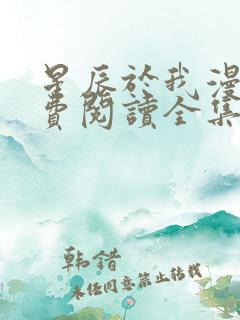 星辰於我漫
費閱讀全集
韩错
未经同意禁止转载